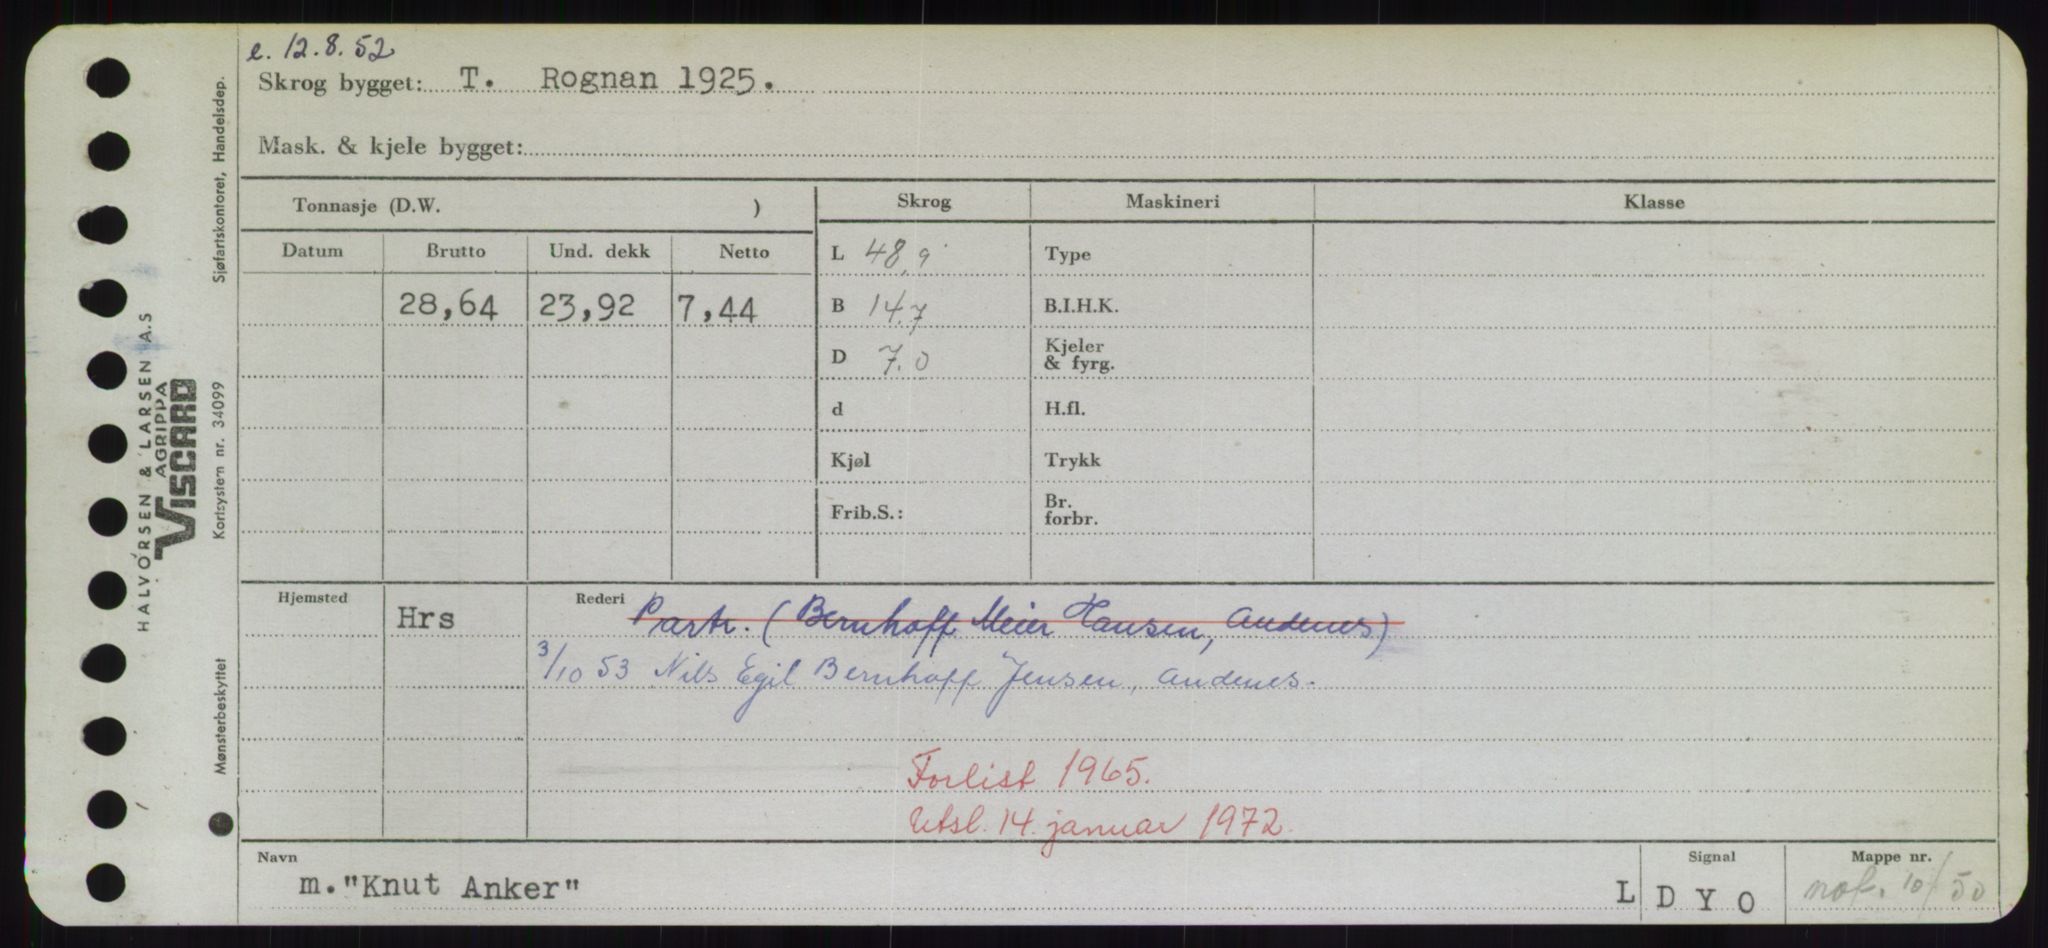 e. 12.8.52
Skrog bygget: T. Rognan 1925.
Mask. & kjele bygget:
Tonnasje (D.W. )
Skrog
Maskineri
Klasse
Datum Brutto Und. dekk Netto
28,64 23,92 7,44
L 48,9
B 14.7
D 7.0
d
Kjøl
Frib.S.:
Type
B.I.H.K.
Kjeler
& fyrg.
H.fl.
Trykk
Br.
forbr.
Hjemsted Hrs Rederi Partr. (Bernhoff Meier Hansen, Andenes)
3/10 53 Nils Egil Bernhoff Jensen, Andenes.
Forlist 1965.
Utsl. 14. januar 1972.
Navn
m. "Knut Anker"
Signal
L D Y O
Mappe nr.
not. 10/50
HALVORSEN & LARSEN A.S
AGRIPPA
VISCARD
Mønsterbeskyttet Kortsystem nr. 34099 Sjøfartskontoret, Handelsdep.